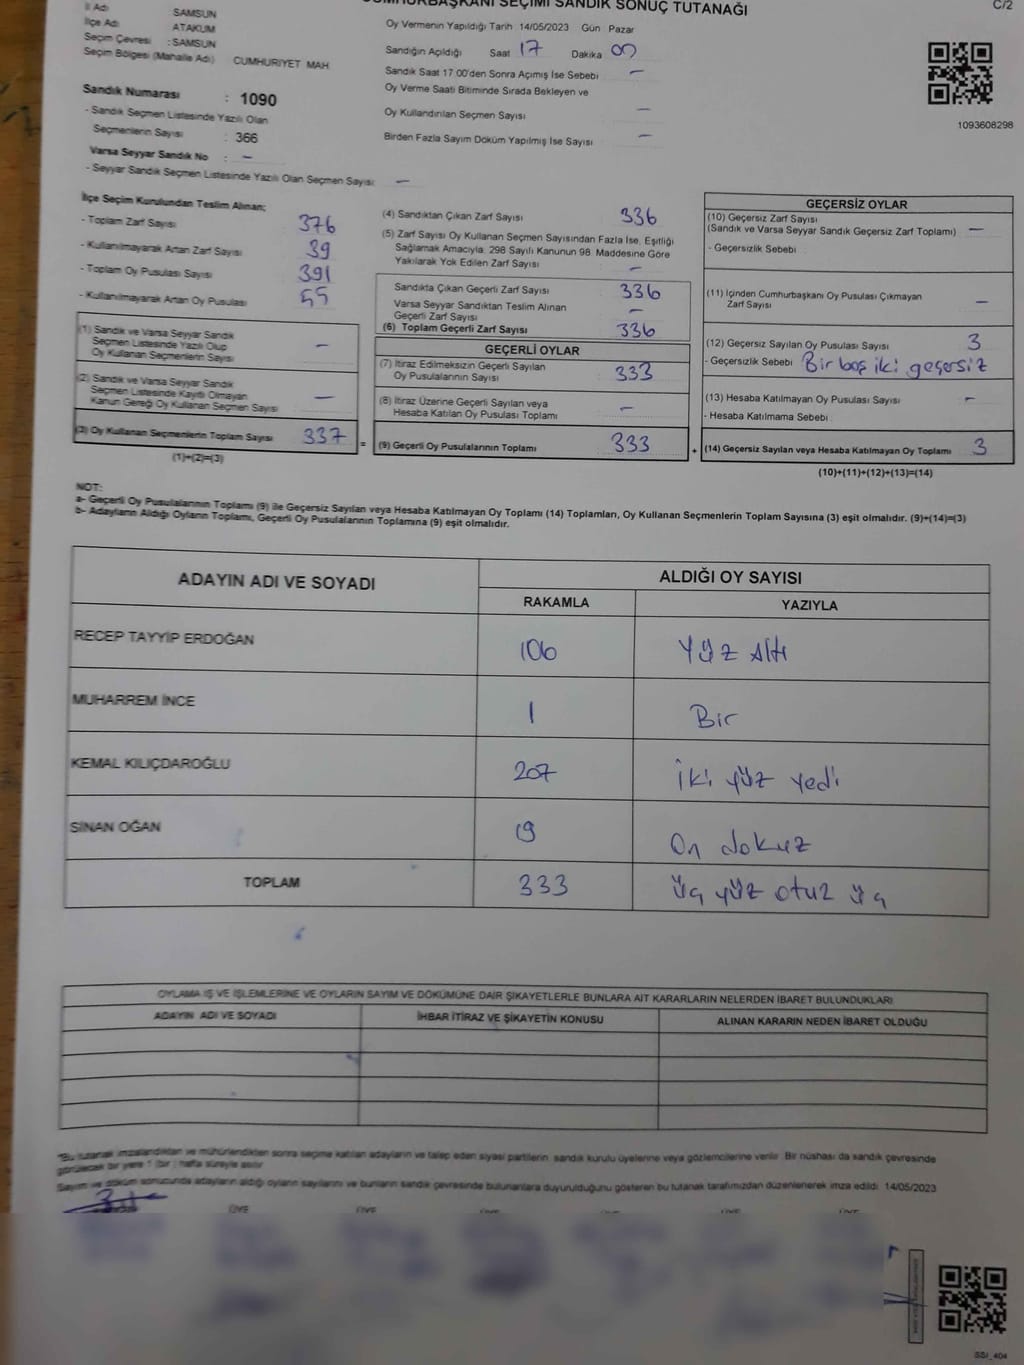 CUMHURBAŞKANI SEÇİMİ SANDIK SONUÇ TUTANAĞI
C/2
İl Adı SAMSUN
İlçe Adı ATAKUM
Seçim Çevresi : SAMSUN
Seçim Bölgesi (Mahalle Adı) CUMHURIYET MAH.
Sandık Numarası : 1090
- Sandık Seçmen Listesinde Yazılı Olan
Seçmenlerin Sayısı : 366
Varsa Seyyar Sandık No : –
- Seyyar Sandık Seçmen Listesinde Yazılı Olan Seçmen Sayısı: –
Oy Vermenin Yapıldığı Tarih 14/05/2023 Gün Pazar
Sandığın Açıldığı Saat 17 Dakika 00
Sandık Saat 17.00'den Sonra Açımış İse Sebebi –
Oy Verme Saati Bitiminde Sırada Bekleyen ve
Oy Kullandırılan Seçmen Sayısı –
Birden Fazla Sayım Döküm Yapılmış İse Sayısı –
1093608298
İlçe Seçim Kurulundan Teslim Alınan;
- Toplam Zarf Sayısı 376
- Kullanılmayarak Artan Zarf Sayısı 39
- Toplam Oy Pusulası Sayısı 391
- Kullanılmayarak Artan Oy Pusulası 55
(1) Sandık ve Varsa Seyyar Sandık
Seçmen Listesinde Yazılı Olup
Oy Kullanan Seçmenlerin Sayısı –
(2) Sandık ve Varsa Seyyar Sandık
Seçmen Listesinde Kayıtlı Olmayan
Kanun Gereği Oy Kullanan Seçmen Sayısı –
(3) Oy Kullanan Seçmenlerin Toplam Sayısı 337 =
(1)+(2)=(3)
(4) Sandıktan Çıkan Zarf Sayısı 336
(5) Zarf Sayısı Oy Kullanan Seçmen Sayısından Fazla İse, Eşitliği
Sağlamak Amacıyla; 298 Sayılı Kanunun 98. Maddesine Göre
Yakılarak Yok Edilen Zarf Sayısı –
Sandıkta Çıkan Geçerli Zarf Sayısı 336
Varsa Seyyar Sandıktan Teslim Alınan
Geçerli Zarf Sayısı –
(6) Toplam Geçerli Zarf Sayısı 336
GEÇERLİ OYLAR
(7) İtiraz Edilmeksizin Geçerli Sayılan
Oy Pusulalarının Sayısı 333
(8) İtiraz Üzerine Geçerli Sayılan veya
Hesaba Katılan Oy Pusulası Toplamı –
(9) Geçerli Oy Pusulalarının Toplamı 333 +
GEÇERSİZ OYLAR
(10) Geçersiz Zarf Sayısı
(Sandık ve Varsa Seyyar Sandık Geçersiz Zarf Toplamı) –
- Geçersizlik Sebebi :
(11) İçinden Cumhurbaşkanı Oy Pusulası Çıkmayan
Zarf Sayısı –
(12) Geçersiz Sayılan Oy Pusulası Sayısı 3
- Geçersizlik Sebebi Bir boş iki geçersiz
(13) Hesaba Katılmayan Oy Pusulası Sayısı –
- Hesaba Katılmama Sebebi :
(14) Geçersiz Sayılan veya Hesaba Katılmayan Oy Toplamı 3
(10)+(11)+(12)+(13)=(14)
NOT:
a- Geçerli Oy Pusulalarının Toplamı (9) ile Geçersiz Sayılan veya Hesaba Katılmayan Oy Toplamı (14) Toplamları, Oy Kullanan Seçmenlerin Toplam Sayısına (3) eşit olmalıdır. (9)+(14)=(3)
b- Adayların Aldığı Oyların Toplamı, Geçerli Oy Pusulalarının Toplamına (9) eşit olmalıdır.
ADAYIN ADI VE SOYADI ALDIĞI OY SAYISI
RAKAMLA YAZIYLA
RECEP TAYYİP ERDOĞAN 106 Yüz Altı
MUHARREM İNCE 1 Bir
KEMAL KILIÇDAROĞLU 207 İki yüz yedi
SİNAN OĞAN 19 On dokuz
TOPLAM 333 üç yüz otuz üç
OYLAMA İŞ VE İŞLEMLERİNE VE OYLARIN SAYIM VE DÖKÜMÜNE DAİR ŞİKAYETLERLE BUNLARA AİT KARARLARIN NELERDEN İBARET BULUNDUKLARI
ADAYIN ADI VE SOYADI İHBAR İTİRAZ VE ŞİKAYETİN KONUSU ALINAN KARARIN NEDEN İBARET OLDUĞU
*Bu tutanak imzalandıktan ve mühürlendikten sonra seçime katılan adayların ve talep eden siyasi partilerin, sandık kurulu üyelerine veya gözlemcilerine verilir. Bir nüshası da sandık çevresinde
görülecek bir yere 1 (bir ) hafta süreyle asılır.
Sayım ve döküm sonucunda adayların aldığı oyların sayılarını ve bunların sandık çevresinde bulunanlara duyurulduğunu gösteren bu tutanak tarafımızdan düzenlenerek imza edildi. 14/05/2023
ÜYE ÜYE ÜYE ÜYE ÜYE ÜYE
SSI_404